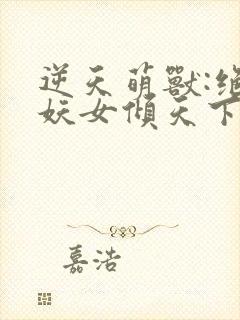 逆天萌獸:絕
妖女傾天下
嘉浩